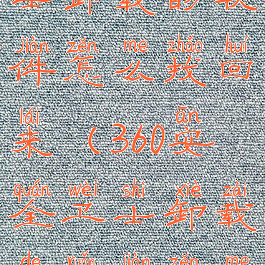 卸载的软
jiàn zěn me zhǎo huí
件怎么找回
lái ān
来(360安
quán wèi shì xiè zài
全卫士卸载
jiàn zěn me